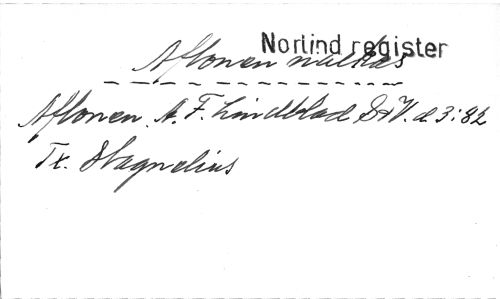 Norlind register
Aftonen nalkas
Aftonen. A. F. Lindblad S&V. d 3:82
Tx. Stagnelius